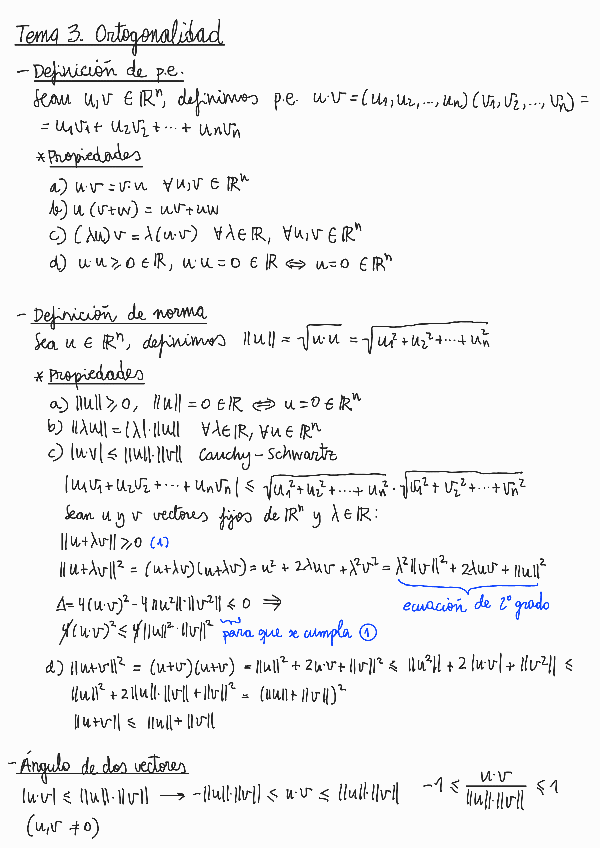 Tema 3. Ortogonalidad
- Definición de p.e.
Sean u,v ∈ ℝⁿ, definimos p.e. u·v = (u₁, u₂, ..., uₙ)(v₁, v₂, ..., vₙ) =
= u₁v₁ + u₂v₂ + ... + uₙvₙ
* Propiedades
a) u·v = v·u ∀u,v ∈ ℝⁿ
b) u (v+w) = uv + uw
c) (λu)v = λ(u·v) ∀λ∈ℝ, ∀u,v ∈ ℝⁿ
d) u·u ⩾ 0 ∈ ℝ, u·u = 0 ∈ ℝ ⇔ u = 0 ∈ ℝⁿ
- Definición de norma
Sea u ∈ ℝⁿ, definimos ||u|| = √(u·u) = √(u₁² + u₂² + ... + uₙ²)
* Propiedades
a) ||u|| ⩾ 0, ||u|| = 0 ∈ ℝ ⇔ u = 0 ∈ ℝⁿ
b) ||λu|| = |λ|·||u|| ∀λ∈ℝ, ∀u ∈ ℝⁿ
c) |u·v| ⩽ ||u||·||v|| Cauchy-Schwartz
|u₁v₁ + u₂v₂ + ... + uₙvₙ| ⩽ √(u₁² + u₂² + ... + uₙ²) · √(v₁² + v₂² + ... + vₙ²)
Sean u y v vectores fijos de ℝⁿ y λ∈ℝ:
||u+λv|| ⩾ 0 (1)
||u+λv||² = (u+λv)(u+λv) = u² + 2λuv + λ²v² = λ²||v||² + 2λuv + ||u||²
Δ = 4(u·v)² - 4||u²||·||v²|| ⩽ 0 ⇒ ecuación de 2º grado
4(u·v)² ⩽ 4||u||²·||v||² para que se cumpla ①
d) ||u+v||² = (u+v)(u+v) = ||u||² + 2u·v + ||v||² ⩽ ||u²|| + 2|u·v| + ||v²|| ⩽
||u||² + 2||u||·||v|| + ||v||² = (||u|| + ||v||)²
||u+v|| ⩽ ||u|| + ||v||
- Ángulo de dos vectores
|u·v| ⩽ ||u||·||v|| ⟶ -||u||·||v|| ⩽ u·v ⩽ ||u||·||v|| -1 ⩽ u·v / ||u||·||v|| ⩽ 1
(u,v ≠ 0)